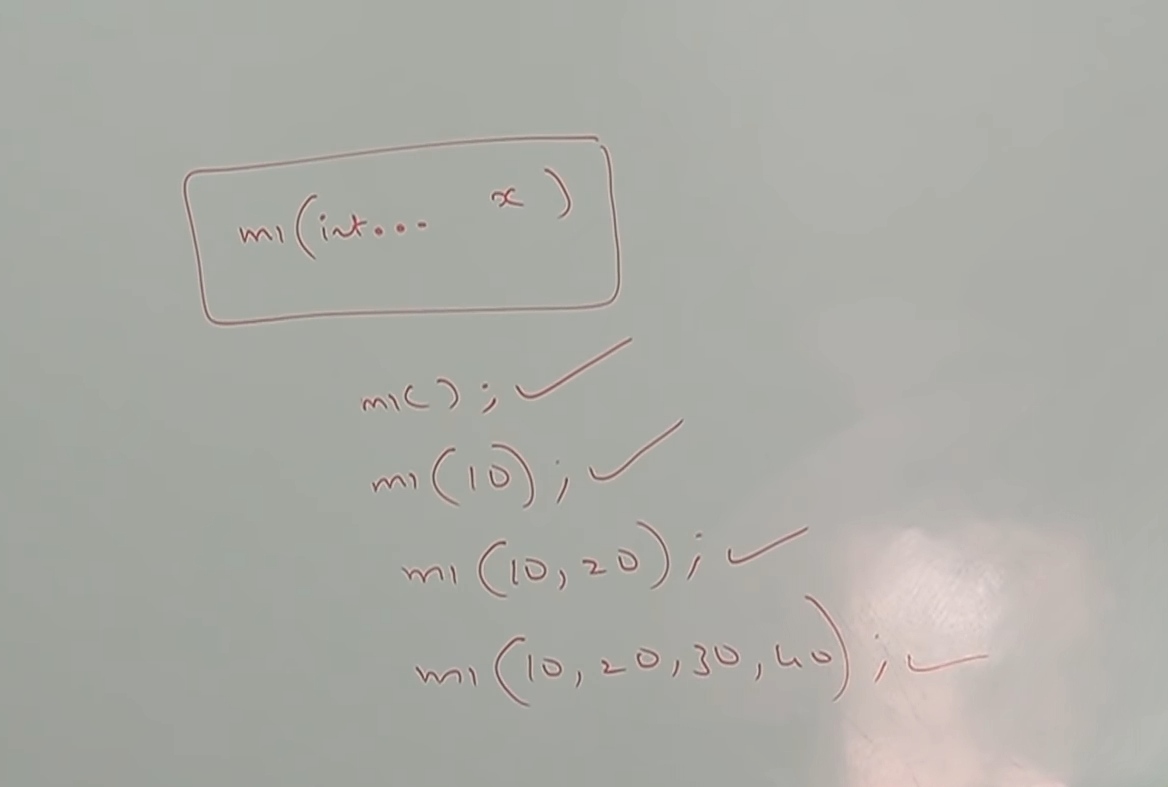 m1(int... x)
m1();
m1(10);
m1(10,20);
m1(10,20,30,40);